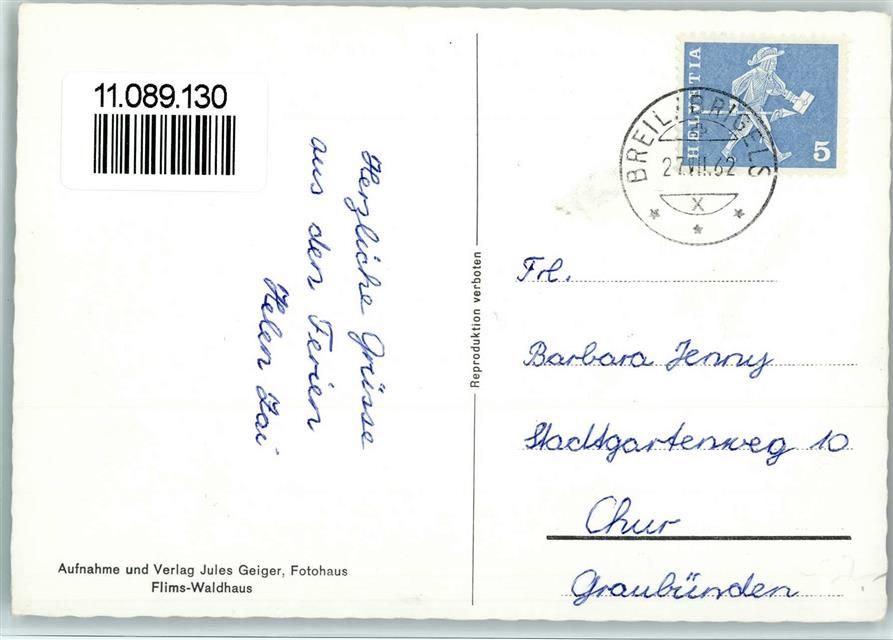 11.089.130
Herzliche Grüsse
aus den Ferien
Helen Zai
Aufnahme und Verlag Jules Geiger, Fotohaus
Flims-Waldhaus
Reproduktion verboten
HELVETIA
5
BREIL/BRIGELS
27.VII.62
X
Frl.
Barbara Jenny
Stadtgartenweg 10
Chur
Graubünden